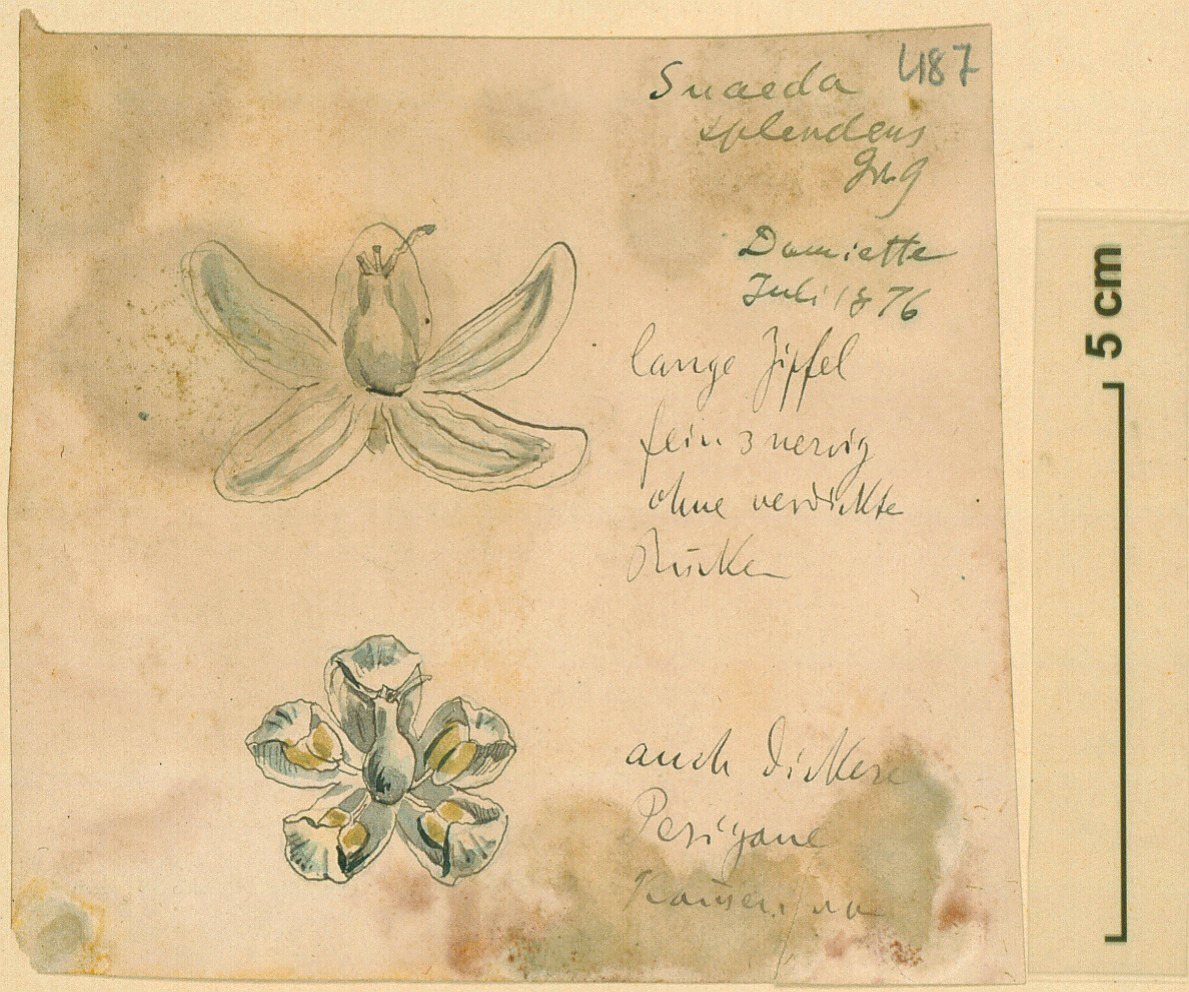 487
Suaeda
splendens
GrG
Damiette
Juli 1876
lange Zipfel
fein 3 nervig
ohne verdickte
Rücken
auch dickere
Perigone
5 cm